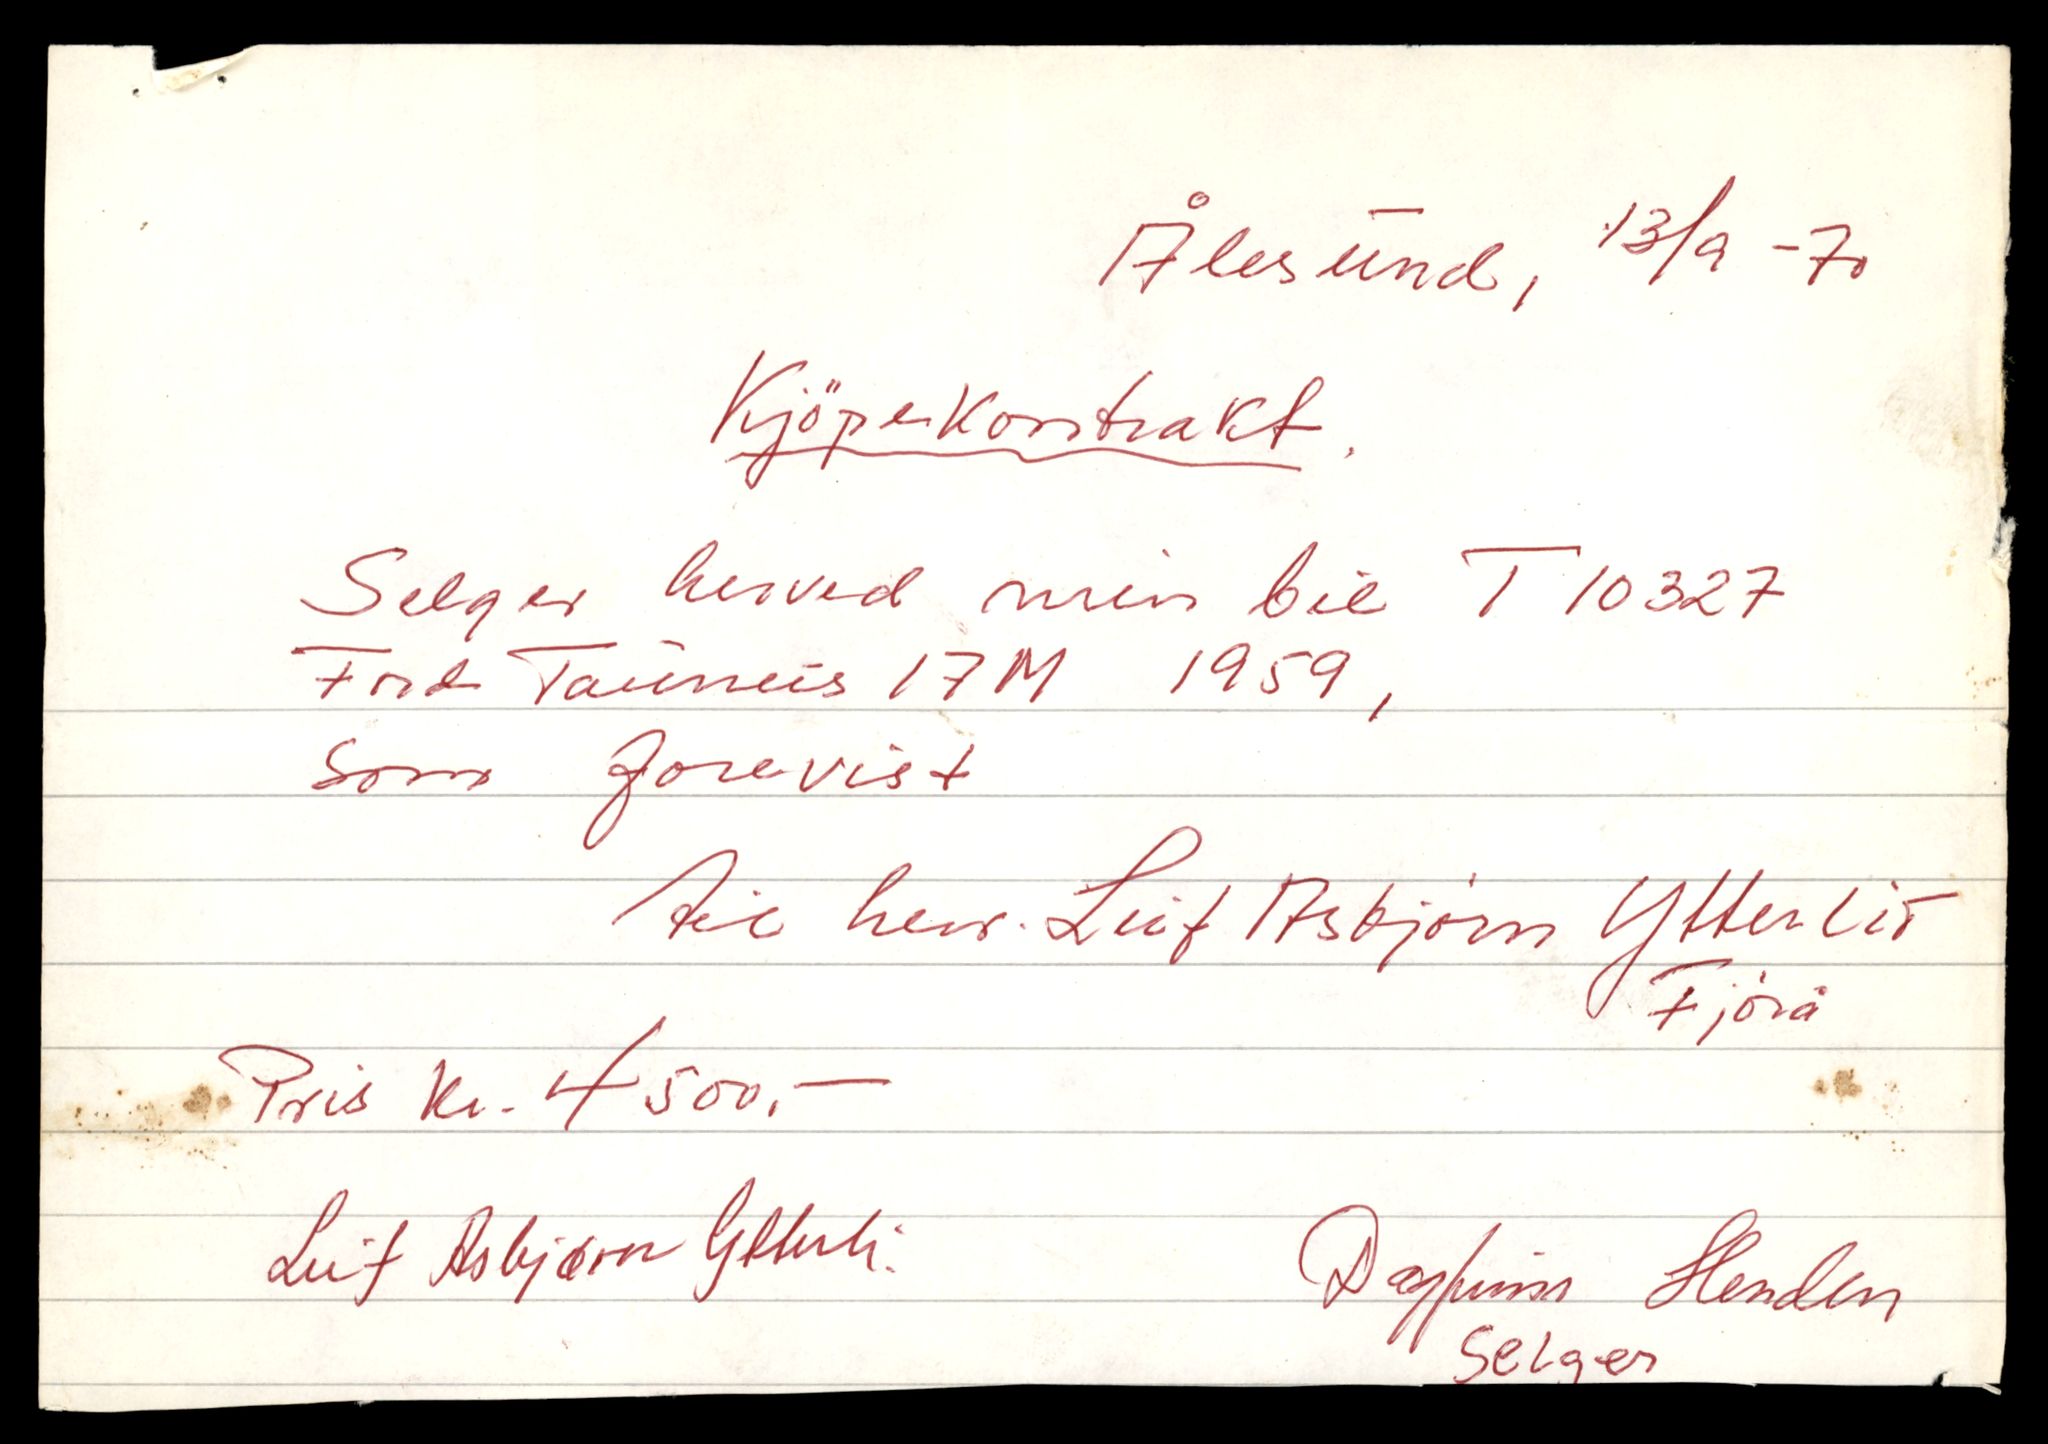 Ålesund, 13/9 -70
Kjöpekontrakt.
Selger herved min bil T 10327
Ford Taunus 17M 1959,
som forevist
til herr. Leif Asbjörn Ytterli
Fjörå
Pris kr. 4500,-
Leif Asbjørn Ytterli.
Dagfinn Henden
Selger